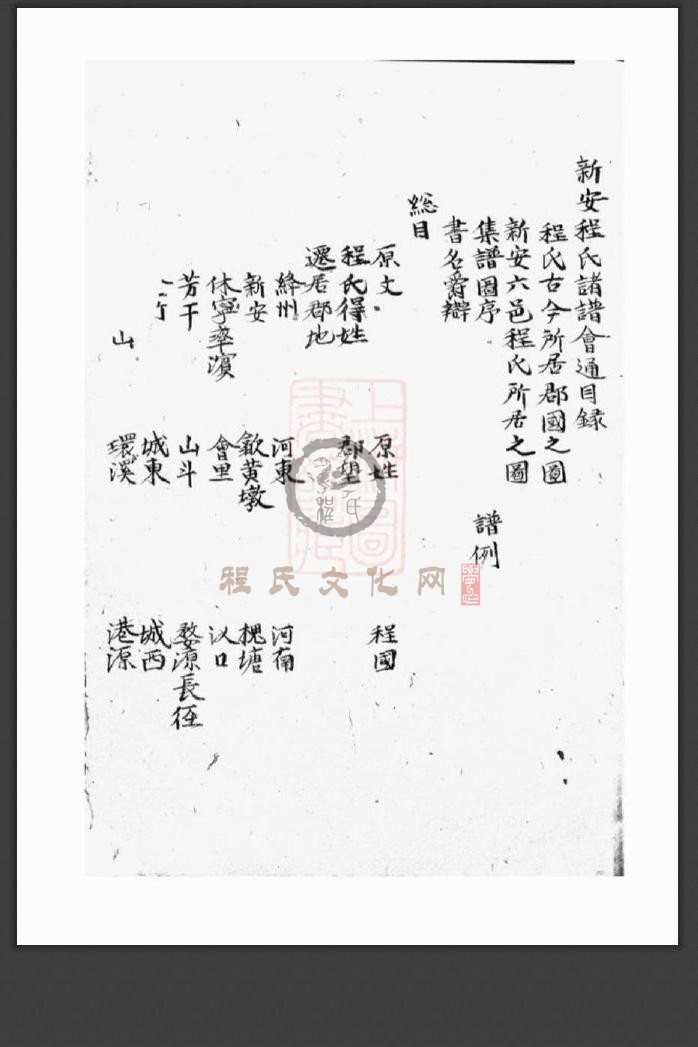 新安程氏諸譜會通目録
程氏古今所居郡國之圖
新安六邑程氏所居之圖
集譜圖序 譜例
書名爵辯
総目
原文 原姓 程國
程氏得姓 郡望
遷居郡地
絳州 河東 河南
新安 歙黄墩 槐塘
休寧率濵 會里 汊口
芳干 山斗 婺源長徑
城東 城西
山 環溪 港源
程氏文化网